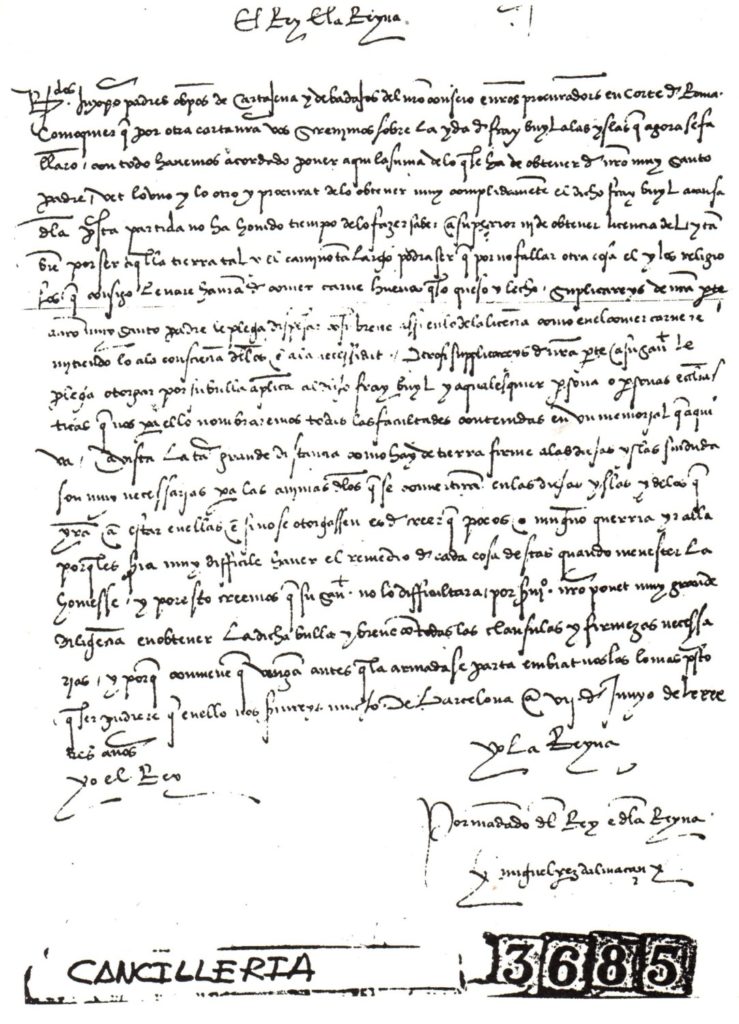 El Rey E la Reyna.
Rdos. In xpo padres obpos de Cartajena y de badajos del nro consejo e nros procuradors en Corte de Roma.
Como quier q por otra carta nra vos screvimos sobre la yda de fray buyl a las yslas q agora se fa
llaro, con todo havemos acordado poner aqui la suma de lo q se ha de obtener de nro muy santo
padre, et lo uno y lo otro y procurat de lo obtener muy complidamete el dicho fray buyl a causa
dla psta partida no ha hovido tiempo de lo fazer saber a su superior ni de obtener licencia del y ta
bie por ser aqlla tierra tal y el camino ta largo podra ser q por no fallar otra cosa el y los religio
sos q consigo levare havra de comer carne huevos qso y leche. Suplicareys de nra pte
a nro muy santo padre le plega dispesar co su breve assi en lo de la licecia como en el comer carne re
mitiendo lo a la consciecia dllos q a la necessidat. Otrosi supplicareys de nra pte a su sant. le
plega otorgar por su bulla aplica al dicho fray buyl y a qualesquier psona o psonas eclias
ticas q nos pa ello nombraremos todas las facultades contenidas en un memorial q aqui
va, vista la ta grande distancia como hay de tierra firme a las dichas yslas sin duda
son muy necessarias pa las animas dlos q se convertira en las dichas yslas y de los q
yra a estar en ellas q si no se otorgassen es de creer q pocos o niguno querria yr alla
porq les sria muy difficile haver el remedio de cada cosa de stas quando menester la
hoviesse, y por esto creemos q su sant. no lo difficultara, por svi. nro ponet muy grande
diligecia en obtener la dicha bulla y breve co todas las clausulas y firmezas necessa
rias, y porq conviene q vengan antes q la armada se parta embiat nos las lo mas psto
q ser pudiere q en ello nos servireys mucho. De Barcelona a VII de Junyo de LRRR
tres años
yo la Reyna
yo el Rey
Por mādado dl Rey e dla Reyna.
miguel prez dalmaçan
CANCILLERIA
3685